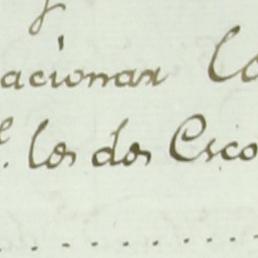 acionar Lo
l. los dos Esco
. . . . . . . . . . . .